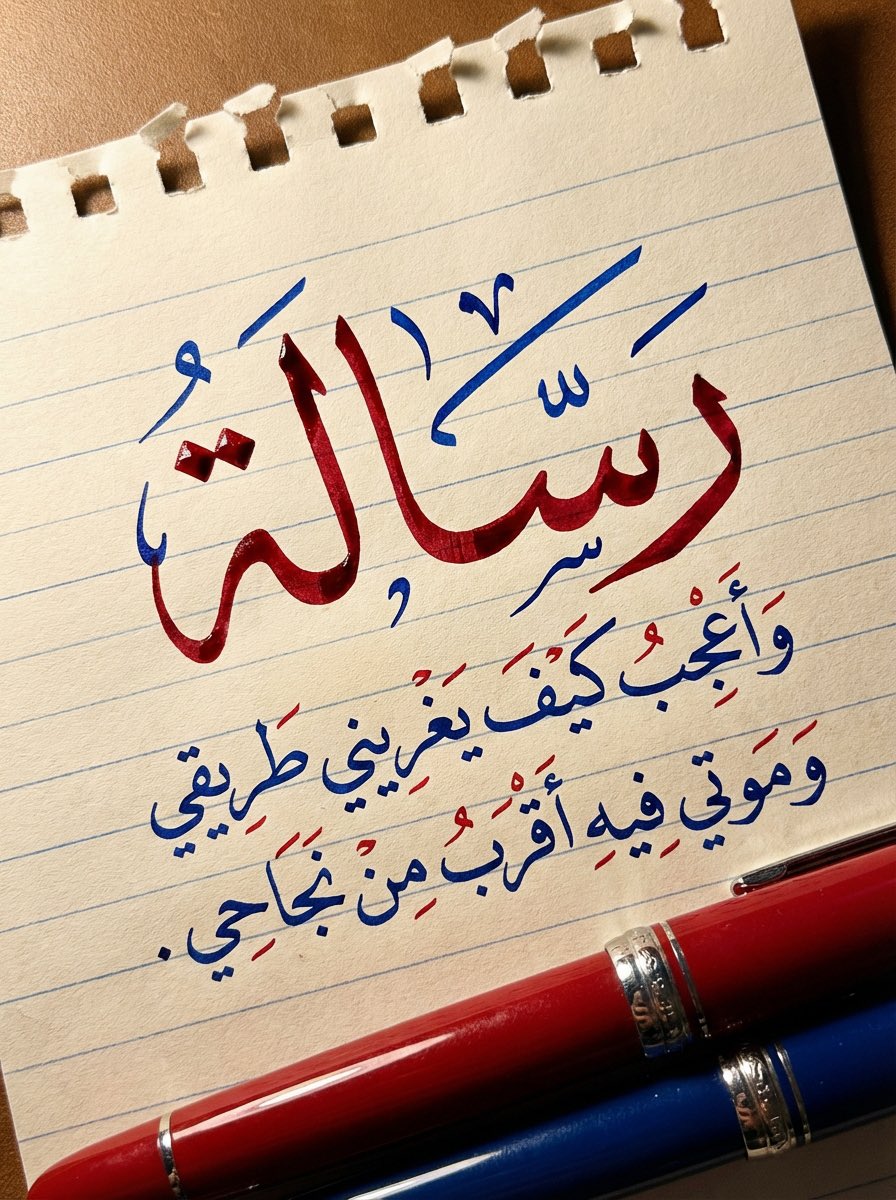 رَسَّالَةُ
وَأَعْجِبُ كَيْفَ يَغْرِيني طَرِيقي
وَمَوتي فِيهِ أَقْرَبُ مِنْ نَجَاحِي.